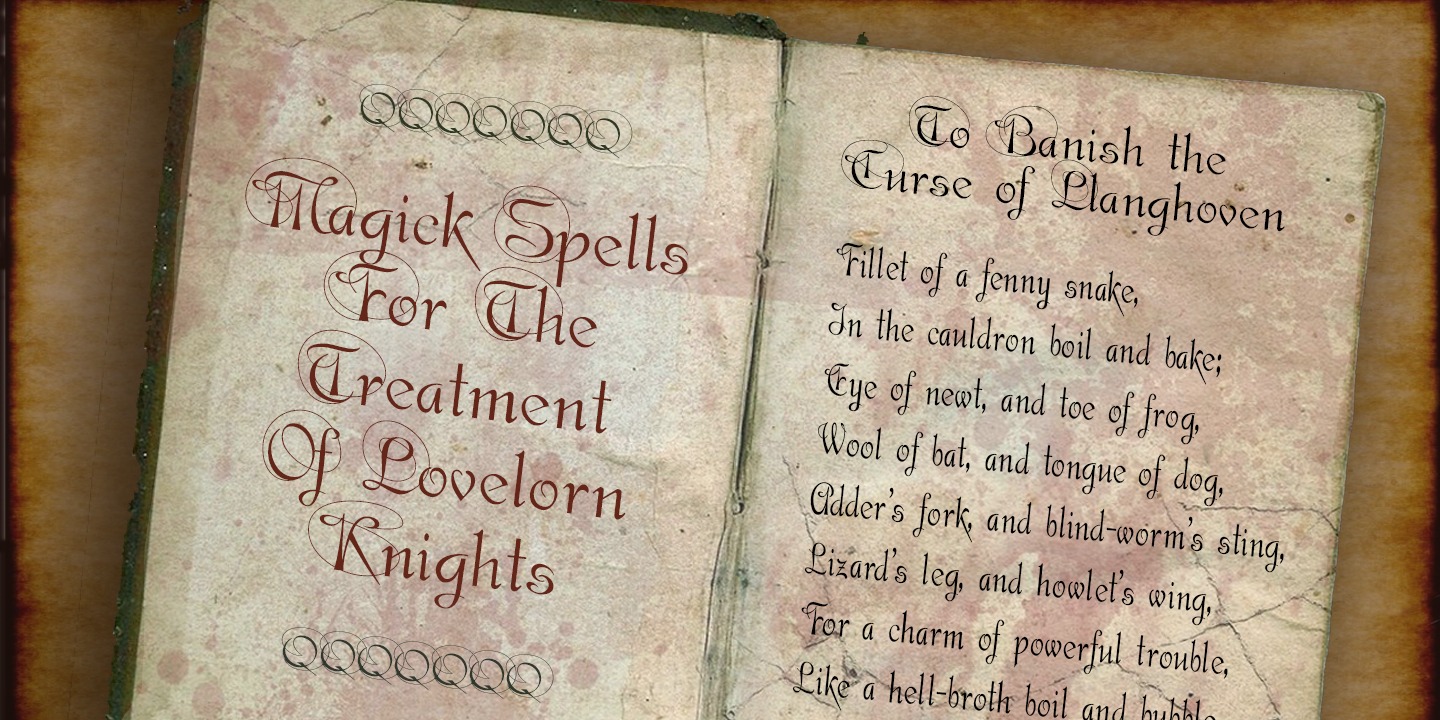 QQQQQQQ
Magick Spells
For The
Treatment
Of Lovelorn
Knights
QQQQQQQ
To Banish the
Curse of Llanghoven
Fillet of a fenny snake,
In the cauldron boil and bake;
Eye of newt, and toe of frog,
Wool of bat, and tongue of dog,
Adder's fork, and blind-worm's sting,
Lizard's leg, and howlet's wing,
For a charm of powerful trouble,
Like a hell-broth boil and bubble